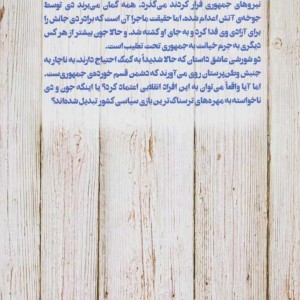 نیروهای جمهوری فرار کردند می‌گذرد. همه گمان می‌برند دی توسط
جوخه‌ی آتش اعدام شده، اما حقیقت ماجرا آن است که برادر دی جانش را
برای آزادی وی فدا کرد و به جای او کشته شد. و حالا جون بیشتر از هر کس
دیگری به جرم خیانت به جمهوری تحت تعقیب است.
دو شورشی عاشق داستان که حالا شدیداً به کمک احتیاج دارند، به ناچار به
جنبش وطن‌پرستان روی می‌آورند که دشمن قسم خورده‌ی جمهوری‌ست.
اما آیا واقعاً می‌توان به این افراد انقلابی اعتماد کرد؟ یا اینکه جون و دی
ناخواسته به مهره‌های ترسناک‌ترین بازی سیاسی کشور تبدیل شده‌اند؟